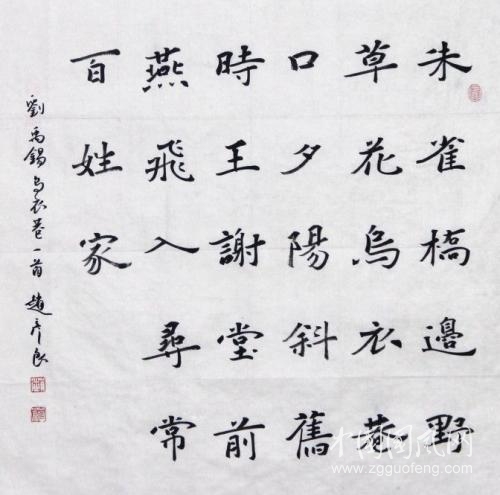 朱雀橋邊野
草花烏衣巷
口夕陽斜舊
時王謝堂前
燕飛入尋常
百姓家
劉禹錫烏衣巷一首 趙彥良
中国国风网
www.zgguofeng.com